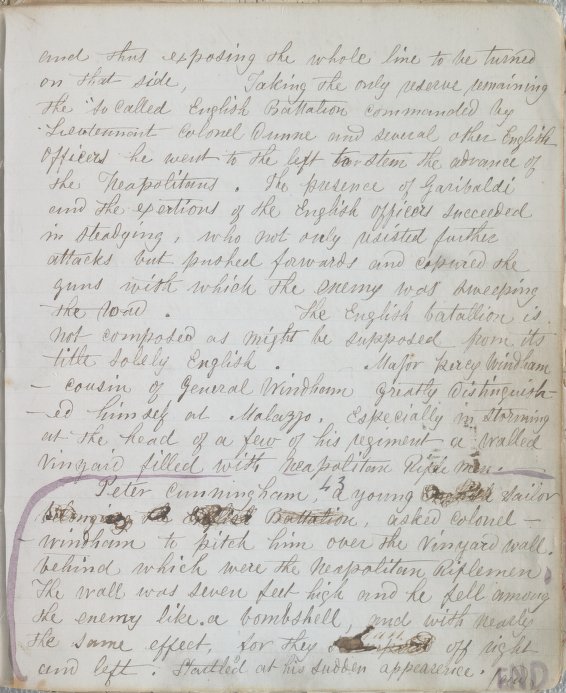 and thus exposing the whole line to be turned
on that side, Taking the only reserve remaining
the "so called English Battalion commanded by
Lieutennant Colonel Dunne and several other English
Officers he went to the left to stem the advance of
the Neapolitans. The presence of Garibaldi
and the exertions of the English officers succeeded
in steadying, who not only resisted further
attacks but pushed forwards and captured the
guns with which the enemy was sweeping
the road. The English batallion is
not composed as might be supposed from its
title solely English. Major Percy Windham
- cousin of General Windham greatly Distinguish-
-ed himself at Malazzo. Especially in storming
at the head of a few of his regiment a walled
Vinyard filled with Neapolitan Rifle men.
Peter Cunningham, 43 a young sailor
belonging to Battalion, asked Colonel -
- Windham to pitch him over the Vinyard wall.
behind which were the Neapolitan Riflemen.
The wall was seven feet high and he fell among
the enemy like a bombshell, and with nearly
the same effect, for they off right
and left. Startled at his sudden appearence.
END